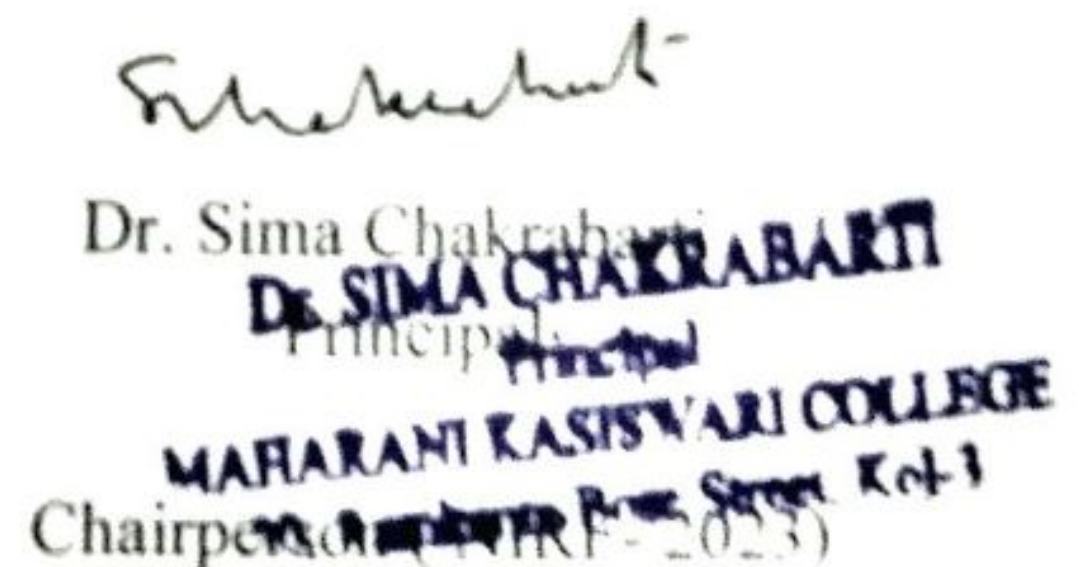 Dr. Sima Chakrabarti
Dr. SIMA CHAKRABARTI
Principal
Principal
MAHARANI KASISWARI COLLEGE
Bose Street Kol-3
Chairperson (NIRF - 2023)